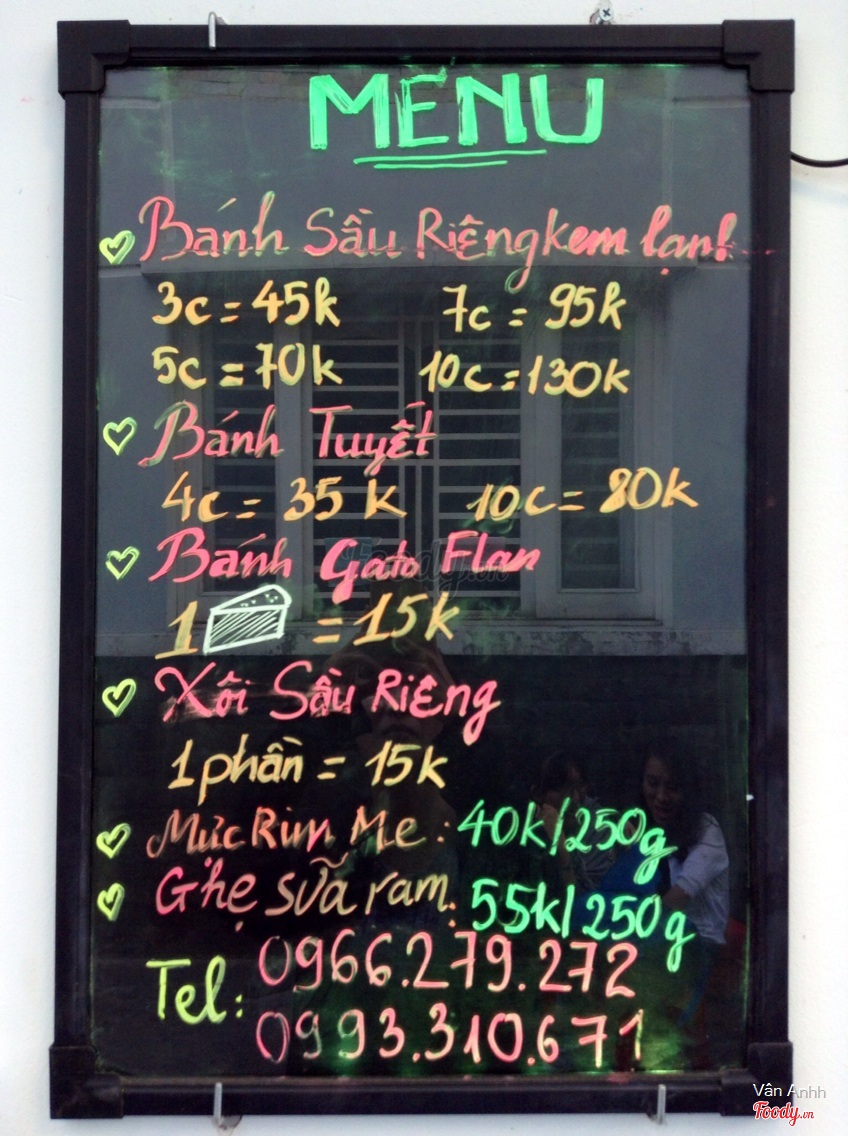 MENU
Bánh Sầu Riêng kem lạnh!
3c = 45k 7c = 95k
5c = 70k 10c = 130k
Bánh Tuyết
4c = 35k 10c = 80k
Bánh Gato Flan
1 = 15k
Xôi Sầu Riêng
1 phần = 15k
Mực Rim Me: 40k/250g
Ghẹ sữa ram: 55k/250g
Tel: 0966.279.272
0993.310.671
Vân Anhh
Foody.vn